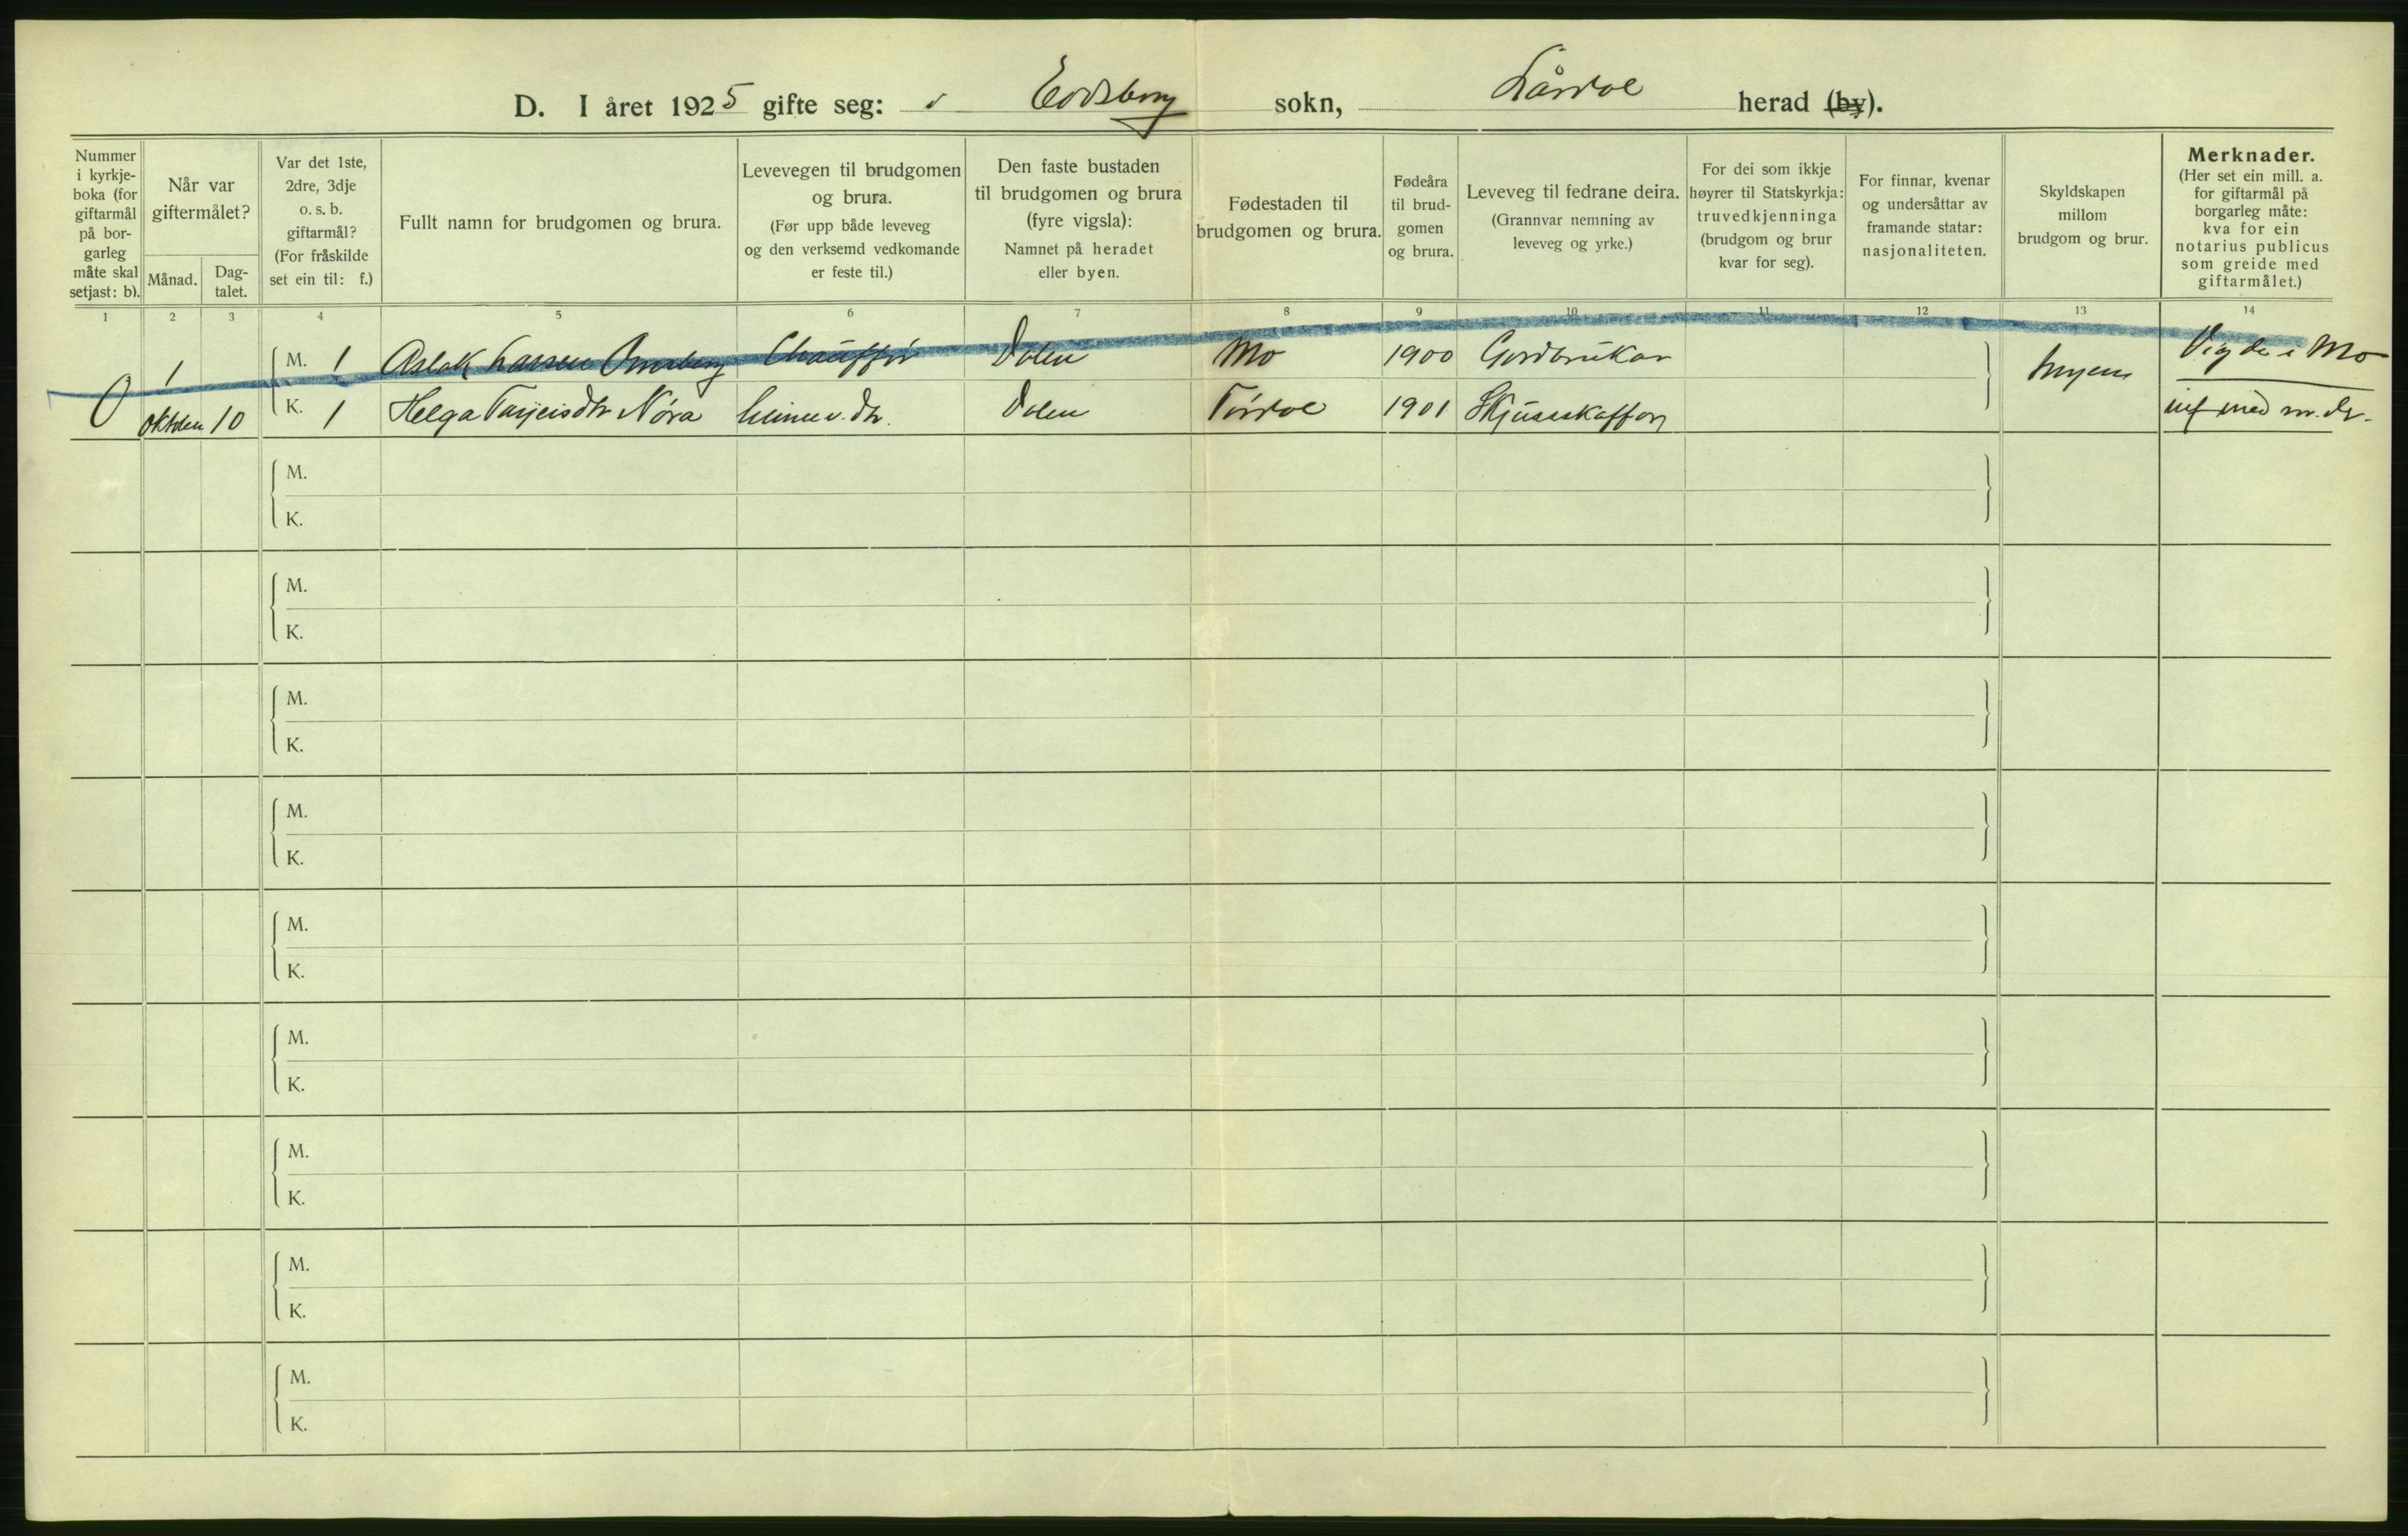 D. I året 1925 gifte seg: i Eidsborg sokn, Lårdal herad (by).
Nummer i kyrkje-boka (for giftarmål på bor-garleg måte skal setjast: b).
Når var giftermålet?
Månad.
Dag-talet.
Var det 1ste, 2dre, 3dje o. s. b. giftarmål? (For fråskilde set ein til: f.)
Fullt namn for brudgomen og brura.
Levevegen til brudgomen og brura. (Før upp både leveveg og den verksemd vedkomande er feste til.)
Den faste bustaden til brudgomen og brura (fyre vigsla): Namnet på heradet eller byen.
Fødestaden til brudgomen og brura.
Fødeåra til brud-gomen og brura.
Leveveg til fedrane deira. (Grannvar nemning av leveveg og yrke.)
For dei som ikkje høyrer til Statskyrkja: truvedkjenninga (brudgom og brur kvar for seg).
For finnar, kvenar og undersåttar av framande statar: nasjonaliteten.
Skyldskapen millom brudgom og brur.
Merknader. (Her set ein mill. a. for giftarmål på borgarleg måte: kva for ein notarius publicus som greide med giftarmålet.)
1 2 3 4 5 6 7 8 9 10 11 12 13 14
1 M. 1 Aslak Larsen Chauffør Dalen Mo 1900 Gardbrukar Ingen Vigde i Mo
0 oktober 10 K. 1 Helga Tarjeisdtr Nóra heimev. dtr. Dalen Tørdal 1901 Skjusskaffar
M.
K.
M.
K.
M.
K.
M.
K.
M.
K.
M.
K.
M.
K.
M.
K.
M.
K.